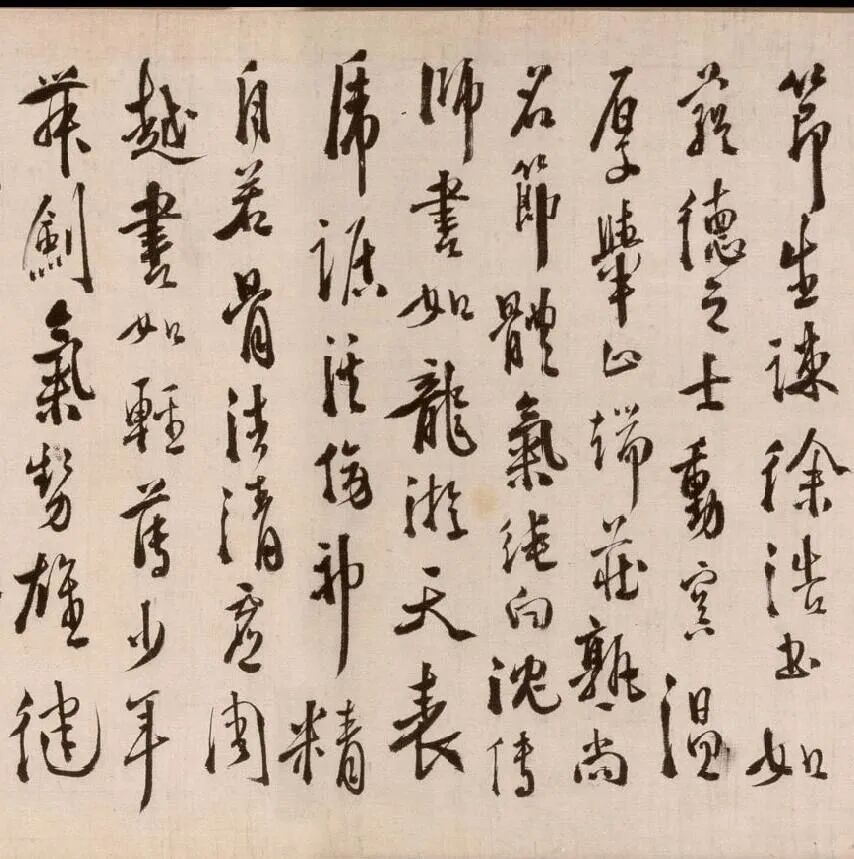 節生疎徐浩書如
蘊德之士動容溫
厚舉止端莊敦尚
名節體氣純白沈傳
師書如龍游天表
虎踞溪傍神精
自若骨法清虛周
越書如輕薄少年
舞劍氣勢雄健